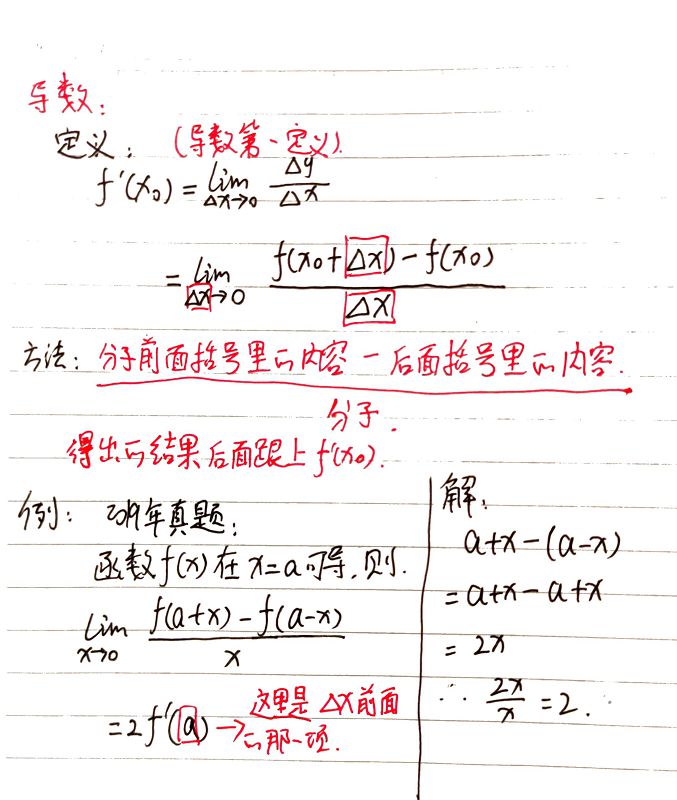 导数:
定义: (导数第一定义).
f'(x₀) = lim Δx→0 Δy/Δx
= lim Δx→0 (f(x₀+Δx) - f(x₀))/Δx
方法: 分子前面括号里的内容 - 后面括号里的内容.
分子.
得出的结果后面跟上 f'(x₀).
例: 2019年真题:
函数f(x)在x=a可导,则.
lim x→0 (f(a+x) - f(a-x))/x
= 2f'(a) → 这里是Δx前面
的那一项.
解:
a+x-(a-x)
= a+x-a+x
= 2x
∴ 2x/x = 2.